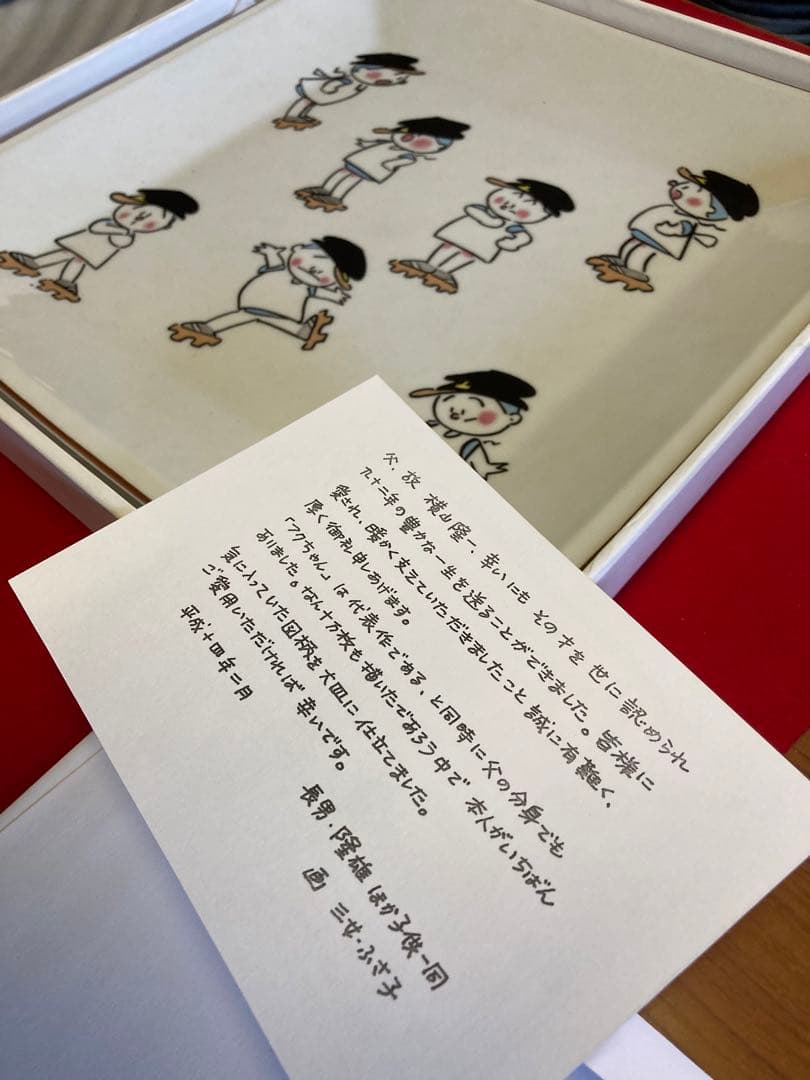 父、故 横山隆一、幸いにも その才を 世に認められ
九十二年の豊かな一生を送ることができました。皆様に
愛され、暖かく支えていただきましたこと誠に有難く、
厚く御礼申しあげます。
「フクちゃん」は代表作である、と同時に父の分身でも
ありました。なん十万枚も描いたであろう中で 本人がいちばん
気に入っていた図柄を大皿に仕立てました。
ご愛用いただければ幸いです。
平成十四年二月
長男・隆雄 ほか子供一同
画 三女・ふさ子